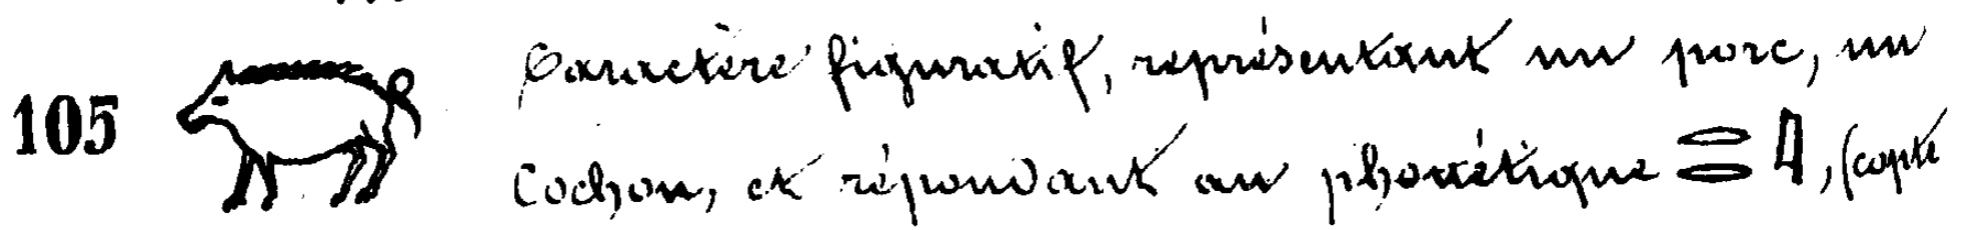 105 Caractère figuratif, représentant un porc, un
Cochon, et répondant au phonétique , (copte